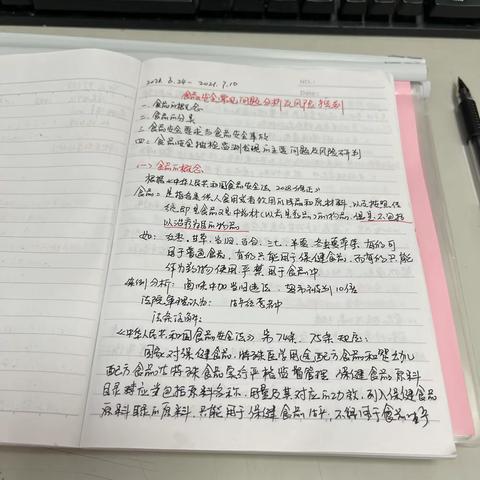 2021.6.24—2021.7.10
NO.:
Date:
食品安全常见问题分析及风险控制
一、食品的概念
二、食品的分类
三、食品安全要求与食品安全事故
四、食品安全抽检监测发现的主要问题及风险研判
(一)食品的概念
根据《中华人民共和国食品安全法 2018修正》
食品：是指各种供人食用或者饮用的成品和原料，以及按照传
统既是食品又是中药材(以前是药品)的物品，但是不包括
以治疗为目的的物品
如：枣，甘草，当归，百合，三七，羊藿，有的可
用于普通食品，有的只能用于保健食品，而有的只能
作为药物使用，严禁用于食品中
案例分析：卤味中加当归违法，超市被判10倍
法院审理认为：
法条诠解：
《中华人民共和国食品安全法》第74条、75条规定：
国家对保健食品、特殊医学用途配方食品和婴幼儿
配方食品等特殊食品实行严格监督管理 保健食品原料
目录应当包括原料名称、用量及其对应的功效，列入保健食品
原料目录的原料，只能用于保健食品生产，不得用于食品生产